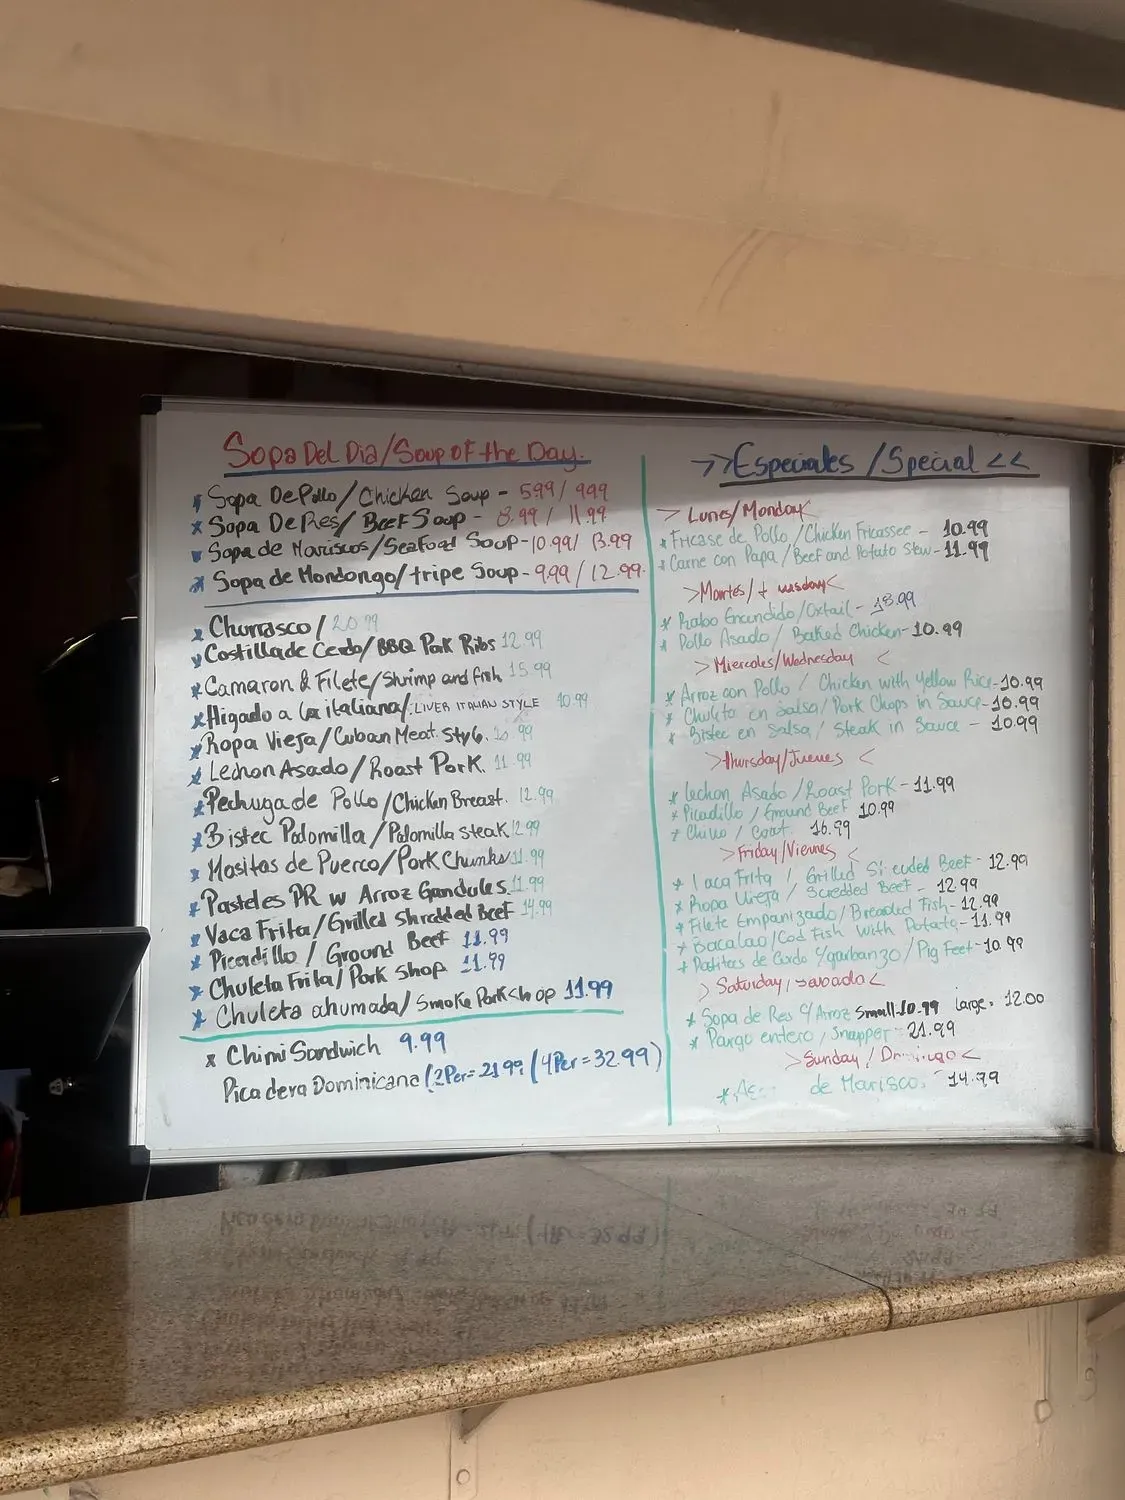 Sopa Del Dia/Soup of the Day.
* Sopa De Pollo/Chicken Soup - 5.99/ 9.99
* Sopa De Res/ Beef Soup - 8.99/ 11.99
* Sopa de Mariscos/Seafood Soup-10.99/ 13.99
* Sopa de Mondongo/tripe Soup-9.99/12.99.
* Churrasco/ 20.99
* Costilla de Cerdo/BBQ Pork Ribs 12.99
* Camaron & Filete/Shrimp and fish 15.99
* Higado a la italiana/LIVER ITALIAN STYLE 10.99
* Ropa Vieja/Cuban Meat. Style. 99
* Lechon Asado/Roast Pork. 11.99
* Pechuga de Pollo/Chicken Breast. 12.99
* Bistec Palomilla/Palomilla steak 12.99
* Masitas de Puerco/Pork Chunks 11.99
* Pasteles PR w Arroz Gandules 11.99
* Vaca Frita/Grilled Shredded Beef 14.99
* Picadillo/ Ground Beef 11.99
* Chuleta Frita/Pork Shop 11.99
* Chuleta ahumada/ Smoke Porkshop 11.99
* Chimi Sandwich 9.99
Picadera Dominicana (2Per=21.99 (4Per=32.99)
>>Especiales /Special <<
> Lunes/Monday<
* Fricase de Pollo/Chicken Fricassee - 10.99
* Carne con Papa/Beef and Potato Stew-11.99
>Martes/t usday<
* Rabo Encendido/Oxtail - 18.99
* Pollo Asado/ Baked Chicken-10.99
> Miercoles/Wednesday <
* Arroz con Pollo / Chicken with Yellow Rice-10.99
* Chuleta en Salsa/Pork Chops in Sauce-10.99
* Bistec en Salsa/ Steak in Sauce - 10.99
>thursday/Jueves <
* Lechon Asado /Roast Pork-11.99
* Picadillo /Ground Beef 10.99
* Chivo / Goat. 16.99
>Friday/Viennes <
* Vaca Frita / Grilled Beef - 12.99
* Ropa Vieja / Scredded Beef - 12.99
* Filete Empanizado/Breaded Fish-12.99
* Bacalao/Cod Fish with Potato-11.99
* Patitas de Cerdo garbanzo/Pig Feet-10.99
> Saturday/ <
* Sopa de Res Arroz Small-10.99 large. 12.00
* Pargo entero/Snapper-21.99
>Sunday / <
* de Marisco. 14.99